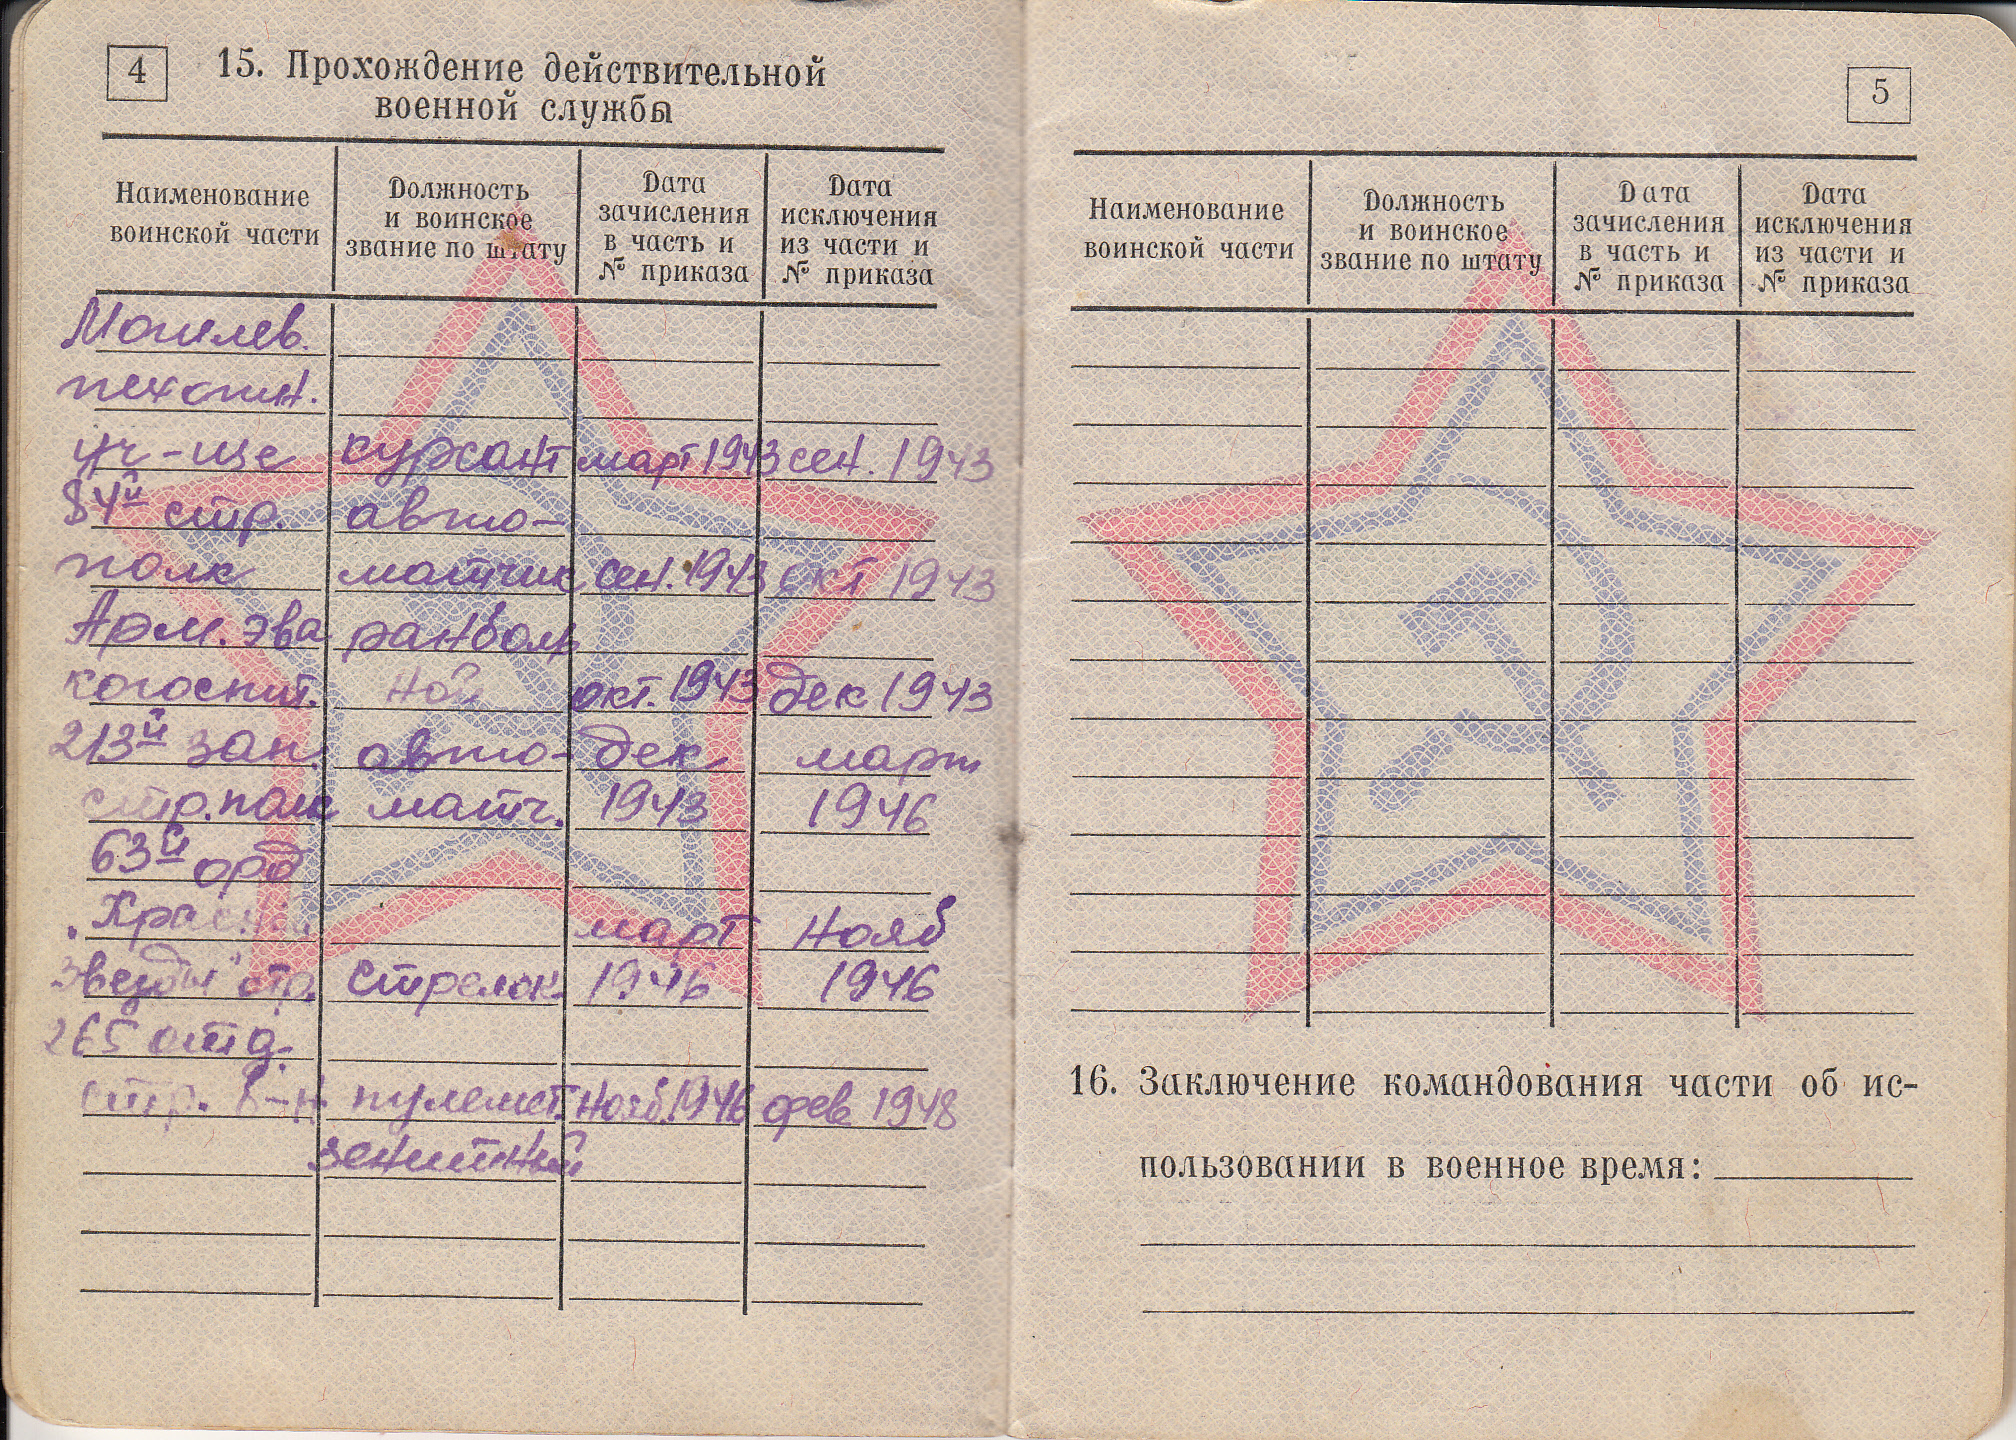 4
15. Прохождение действительной
военной службы
Наименование
воинской части
Должность
и воинское
звание по штату
Дата
зачисления
в часть и
№ приказа
Дата
исключения
из части и
№ приказа
Могилев.
пехотн.
уч-ще курсант март 1943 сен. 1943
84й стр. авто-
полк матчик сен. 1943 окт 1943
Арм. эва ранболь
когоспит. ной окт. 1943 дек 1943
213й зап. авто- дек март
стр. полк матч. 1943 1946
63й орд
"Красной март нояб
Звезды" стр. Стрелок 1946 1946
265 отд.
стр. б-н пулемет. нояб. 1946 фев 1948
зенитный
5
Наименование
воинской части
Должность
и воинское
звание по штату
Дата
зачисления
в часть и
№ приказа
Дата
исключения
из части и
№ приказа
16. Заключение командования части об ис-
пользовании в военное время: